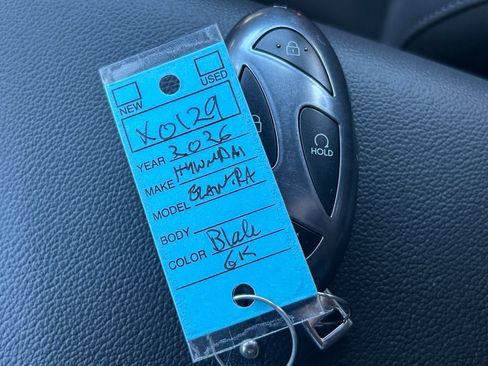 NEW USED
X0129
YEAR 2026
MAKE HYUNDAI
MODEL ELANTRA
BODY
COLOR Black
6K
HOLD